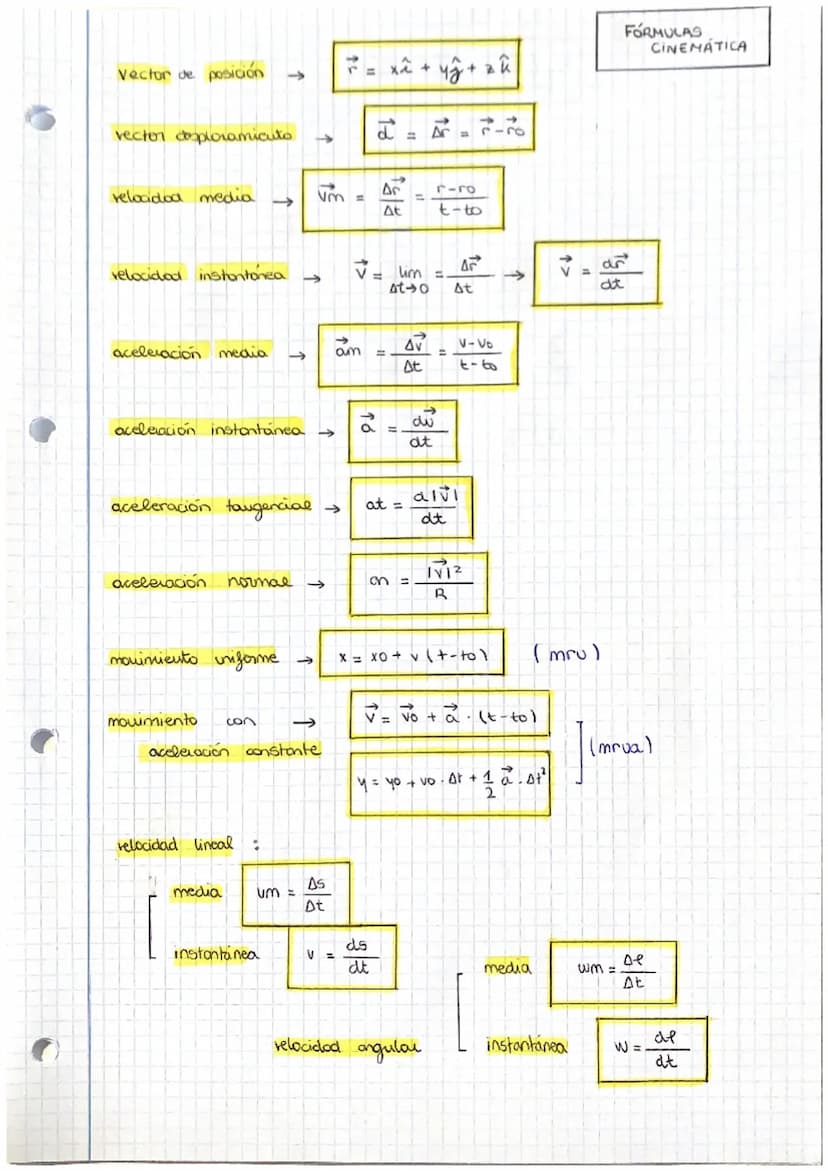 FÓRMULAS
CINEMÁTICA
vector de posición → r⃗ = xî + yĵ + zk̂
vector desplazamiento → d⃗ = Δr⃗ = r⃗ - r⃗o
velocidad media → v⃗m = Δr⃗/Δt = r-ro/t-to
velocidad instantánea → v⃗ = lim Δt→0 = Δr⃗/Δt → v⃗ = dr⃗/dt
aceleración media → a⃗m = Δv⃗/Δt = v-vo/t-to
aceleración instantánea → a⃗ = dv⃗/dt
aceleración tangencial → at = d|v⃗|/dt
aceleración normal → an = |v⃗|²/R
movimiento uniforme → x = xo + v (t-to) (mru)
movimiento con → v⃗ = v⃗o + a⃗ · (t-to)
aceleración constante (mrua)
y = yo + vo · Δt + 1/2 a⃗ · Δt²
velocidad lineal :
media vm = Δs/Δt
instantánea v = ds/dt
media wm = Δℓ/Δt
velocidad angular instantánea w = dℓ/dt